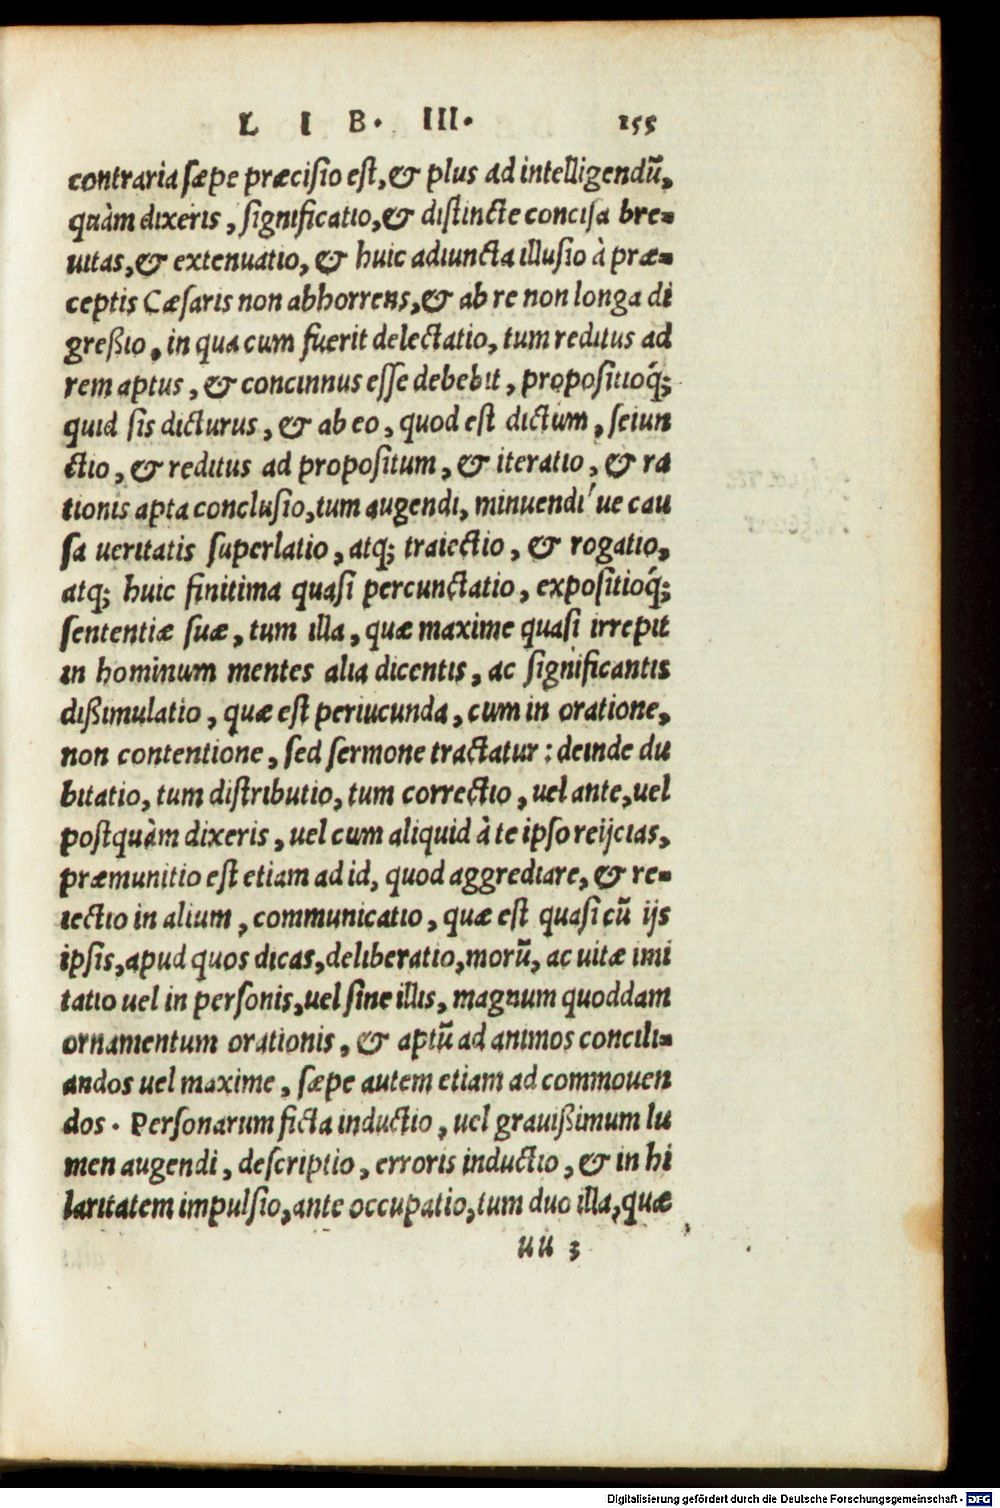 LIB. III. 155
contraria sæpe præcisio est, & plus ad intelligendũ,
quàm dixeris, significatio, & distincte concisa bre-
uitas, & extenuatio, & huic adiuncta illusio à præ-
ceptis Cæsaris non abhorrens, & ab re non longa di
greßio, in qua cum fuerit delectatio, tum reditus ad
rem aptus, & concinnus esse debebit, propositioq́;
quid sis dicturus, & ab eo, quod est dictum, seiun
ctio, & reditus ad propositum, & iteratio, & ra
tionis apta conclusio, tum augendi, minuendi'ue cau
sa ueritatis superlatio, atq; traiectio, & rogatio,
atq; huic finitima quasi percunctatio, expositioq́;
sententiæ suæ, tum illa, quæ maxime quasi irrepit
in hominum mentes alia dicentis, ac significantis
dißimulatio, quæ est periucunda, cum in oratione,
non contentione, sed sermone tractatur: deinde du
bitatio, tum distributio, tum correctio, uel ante, uel
postquàm dixeris, uel cum aliquid à te ipso reijcias,
præmunitio est etiam ad id, quod aggrediare, & re-
iectio in alium, communicatio, quæ est quasi cũ ijs
ipsis, apud quos dicas, deliberatio, morũ, ac uitæ imi
tatio uel in personis, uel sine illis, magnum quoddam
ornamentum orationis, & aptũ ad animos concili-
andos uel maxime, sæpe autem etiam ad commouen
dos. Personarum ficta inductio, uel grauißimum lu
men augendi, descriptio, erroris inductio, & in hi
laritatem impulsio, ante occupatio, tum duo illa, quæ
uu 3
Digitalisierung gefördert durch die Deutsche Forschungsgemeinschaft - DFG